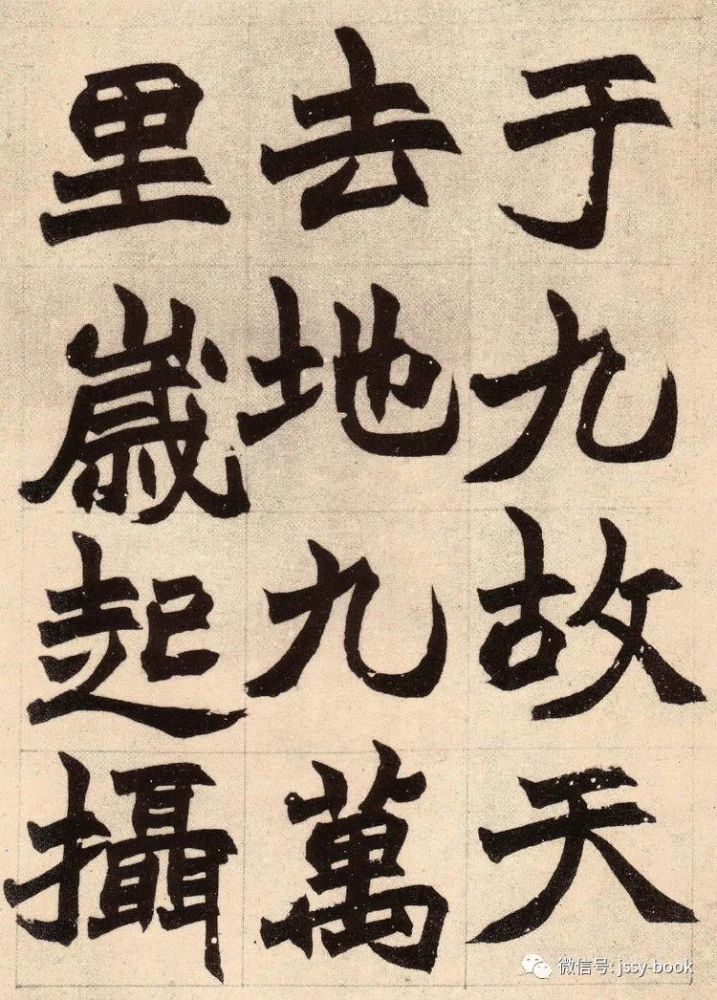 于九故天
去地九萬
里歲起攝
微信号: jssy-book